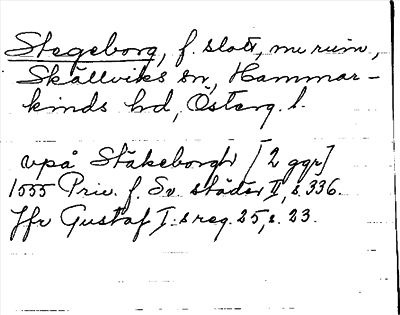 Stegeborg, f. slott, nu ruin,
Skällviks sn, Hammar-
kinds hd, Österg. l.
vpå Stäkeborgh [2 ggr]
1555 Priv. f. Sv. städer II, s. 336.
Jfr Gustaf I:s reg. 25, s. 23.